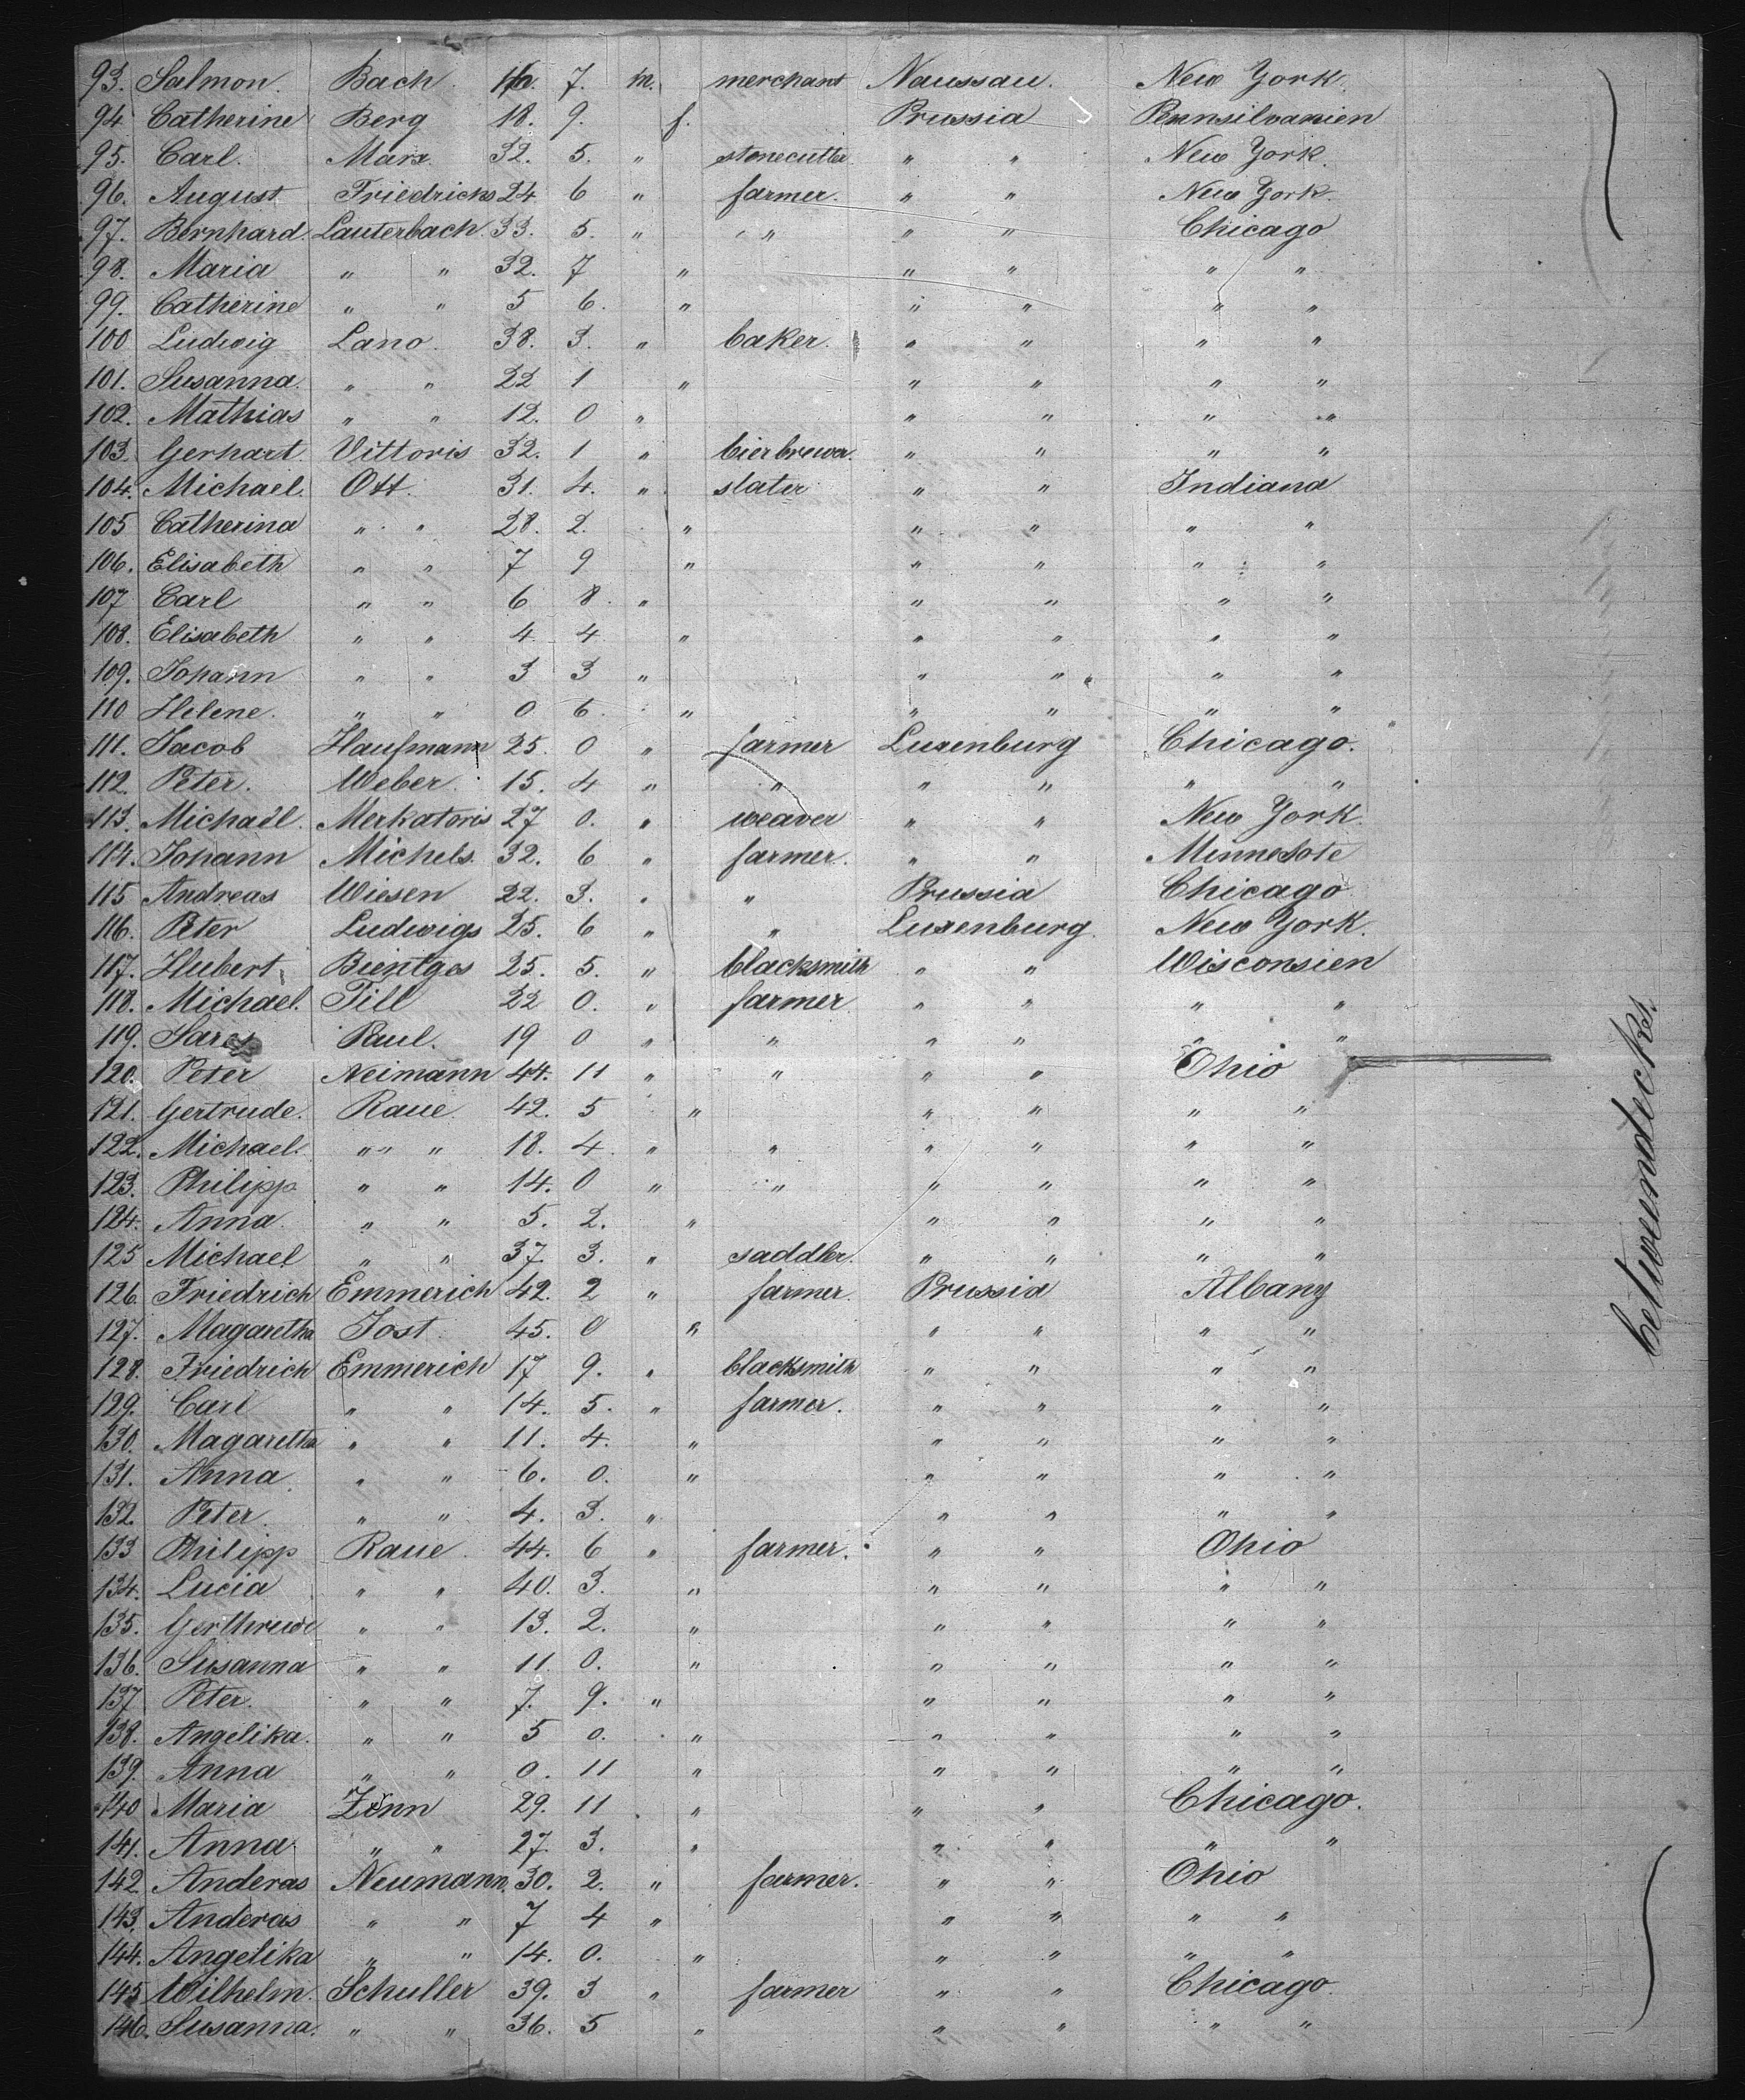 93. Salmon. Bach 7. m. merchant Naussau. New York.
94 Catherine Berg 18. 9. f. Prussia Pennsilvanien
95. Carl. Marx. 32. 5. " stonecutter " " New York.
96. August Friedrichs 24 6 " farmer. " " New York.
97. Bernhard. Lauterbach. 33. 5. " " " " Chicago
98. Maria " " 32. 7 " " " " "
99. Catherine " " 5 6. " " " " "
100 Ludwig Lano. 38. 3. " baker. " " " "
101. Susanna. " " 22 1 " " " " "
102. Mathias " " 12. 0 " " " " "
103. Gerhart Vittoris 32. 1 " bierbrewer. " " " "
104. Michael. Ott. 31. 4. " slater " " Indiana
105 Catherina " " 28. 2. " " " " "
106. Elisabeth " " 7 9 " " " " "
107 Carl " " 6 8. " " " " "
108. Elisabeth " " 4 4 " " " " "
109. Johann " " 3 3 " " " " "
110 Helene. " " 0 6. " " " " "
111. Jacob Haufmann 25. 0 " farmer Luxenburg Chicago.
112. Peter. Weber. 15. 4 " " " " " "
113. Michaël. Merkatoris 27 0. " weaver " " New York.
114. Johann Michels. 32. 6 " farmer. " " Minnesote
115 Andreas Wiesen 22. 3. " " Prussia Chicago
116. Peter Ludwigs 25. 6 " " Luxenburg. New York.
117. Hubert Bientges 25. 5. " blacksmith " " Wisconsien
118. Michael. Till 22 0. " farmer " " " "
119. Paul. 19 0 " " " " " "
120. Peter Neimann 44. 11 " " " " Ohio
121. Gertrude. Raue. 42. 5 " " " " "
122. Michael. " " " 18. 4. " " " " " "
123. Philipp " " 14. 0 " " " " " "
124. Anna. " " 5. 2. " " " " "
125 Michael " " 37. 3. " saddler. " " " "
126. Friedrich Emmerich 42. 2 " farmer. Prussia Albany
127. Magaretha Jost. 45. 0 " " " " "
128. Friedrich Emmerich 17 9. " blacksmith " " " "
129. Carl " " 14. 5. " farmer. " " " "
130. Magaretha " " 11. 4. " " " " "
131. Anna " " 6. 0. " " " " "
132. Peter. " " 4. 3. " " " " "
133 Philipp Raue. 44. 6 " farmer. " " Ohio
134. Lucia " " 40. 3. " " " " "
135. Gerthrude " " 13. 2. " " " " "
136. Susanna " " 11. 0. " " " " "
137 Peter. " " 7. 9. " " " " "
138. Angelika. " " 5 0. " " " " "
139. Anna " " 0. 11 " " " " "
140 Maria Zinn 29. 11. " " " Chicago.
141. Anna. " " 27. 3. " " " " "
142. Anderas Neumann. 30. 2. " farmer. " " Ohio
143. Anderas " " 7 4 " " " " "
144. Angelika " " 14. 0. " " " " "
145 Wilhelm. Schuller 39. 3 " farmer " " Chicago.
146. Susanna. " " 36. 5 " " " " "
betweendecks.